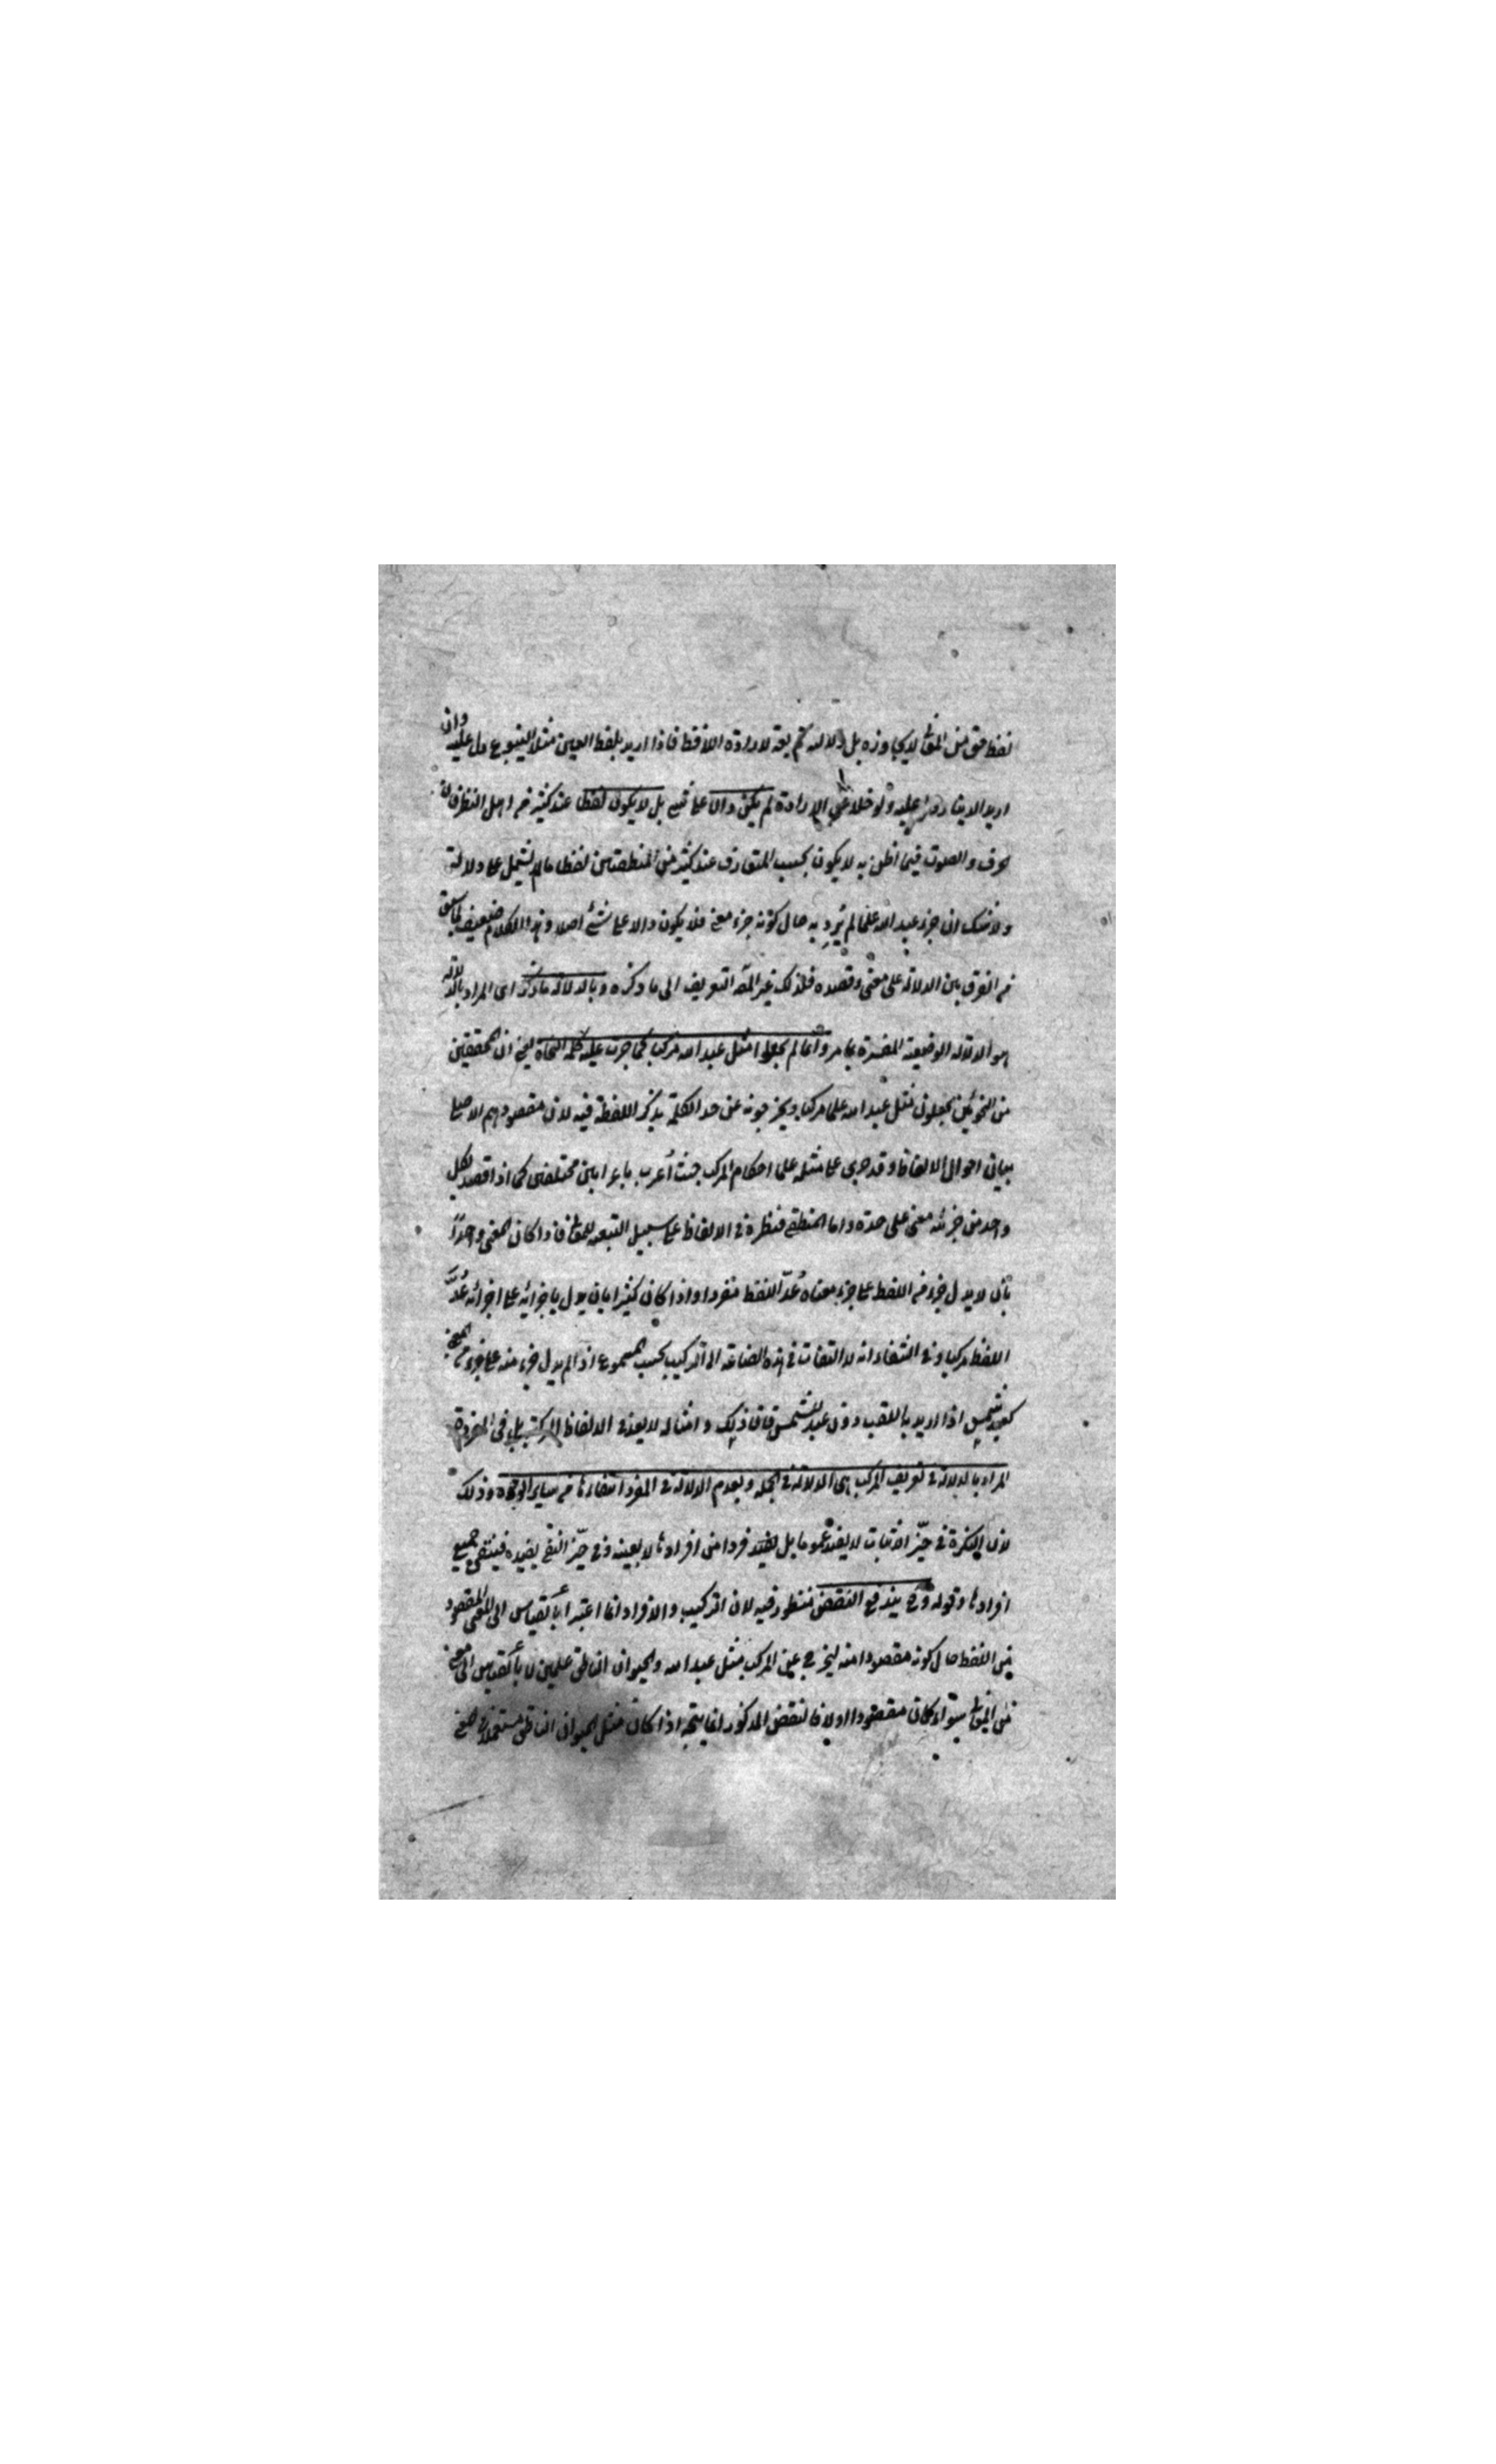 لفظ حق من المعنى لا يجاوزه بل دلالته تابعة لارادة اللافظ فاذا اريد بلفظ العين مثلا الينبوع دل عليه وان
اريد الدينار دل عليه ولو خلا عن الارادة لم يكن دالا على شيء بل لا يكون لفظا عند كثير من اهل النظر فان
الحرف والصوت فيما اظن به لا يكون بحسب المتعارف عند كثير من المنطقيين لفظا ما لم يشتمل على دلالة
ولا شك ان جزء عبد الله علما لم يرد به حال كونه جزء معنى فلا يكون دالا على شئ اصلا وهذا الكلام ضعيف لما سبق
من الفرق بين الدلالة على معنى وقصده فلذلك غير المصـ التعريف الى ما ذكره وبالدلالة ما ذكر اى المراد بالدلالة
هو الدلالة الوضعية المفسرة بما مر وانما لم يجعلوا مثل عبد الله مركبا كما جرت عليه كلمة النحاة يعنى ان المحققين
من النحويين يجعلون مثل عبد الله علما مركبا ويخرجونه عن حد الكلمة بذكر اللفظة فيه لان مقصودهم الاصلى
بيان احوال الالفاظ وقد جرى على مثله على احكام المركب حيث أعرب باعرابين مختلفين كما اذا قصد بكل
واحد من جزئيه معنى على حدة واما المنطقى فنظره فى الالفاظ على سبيل التبعية للمعانى فاذا كان المعنى واحدًا
بان لا يدل جزء من اللفظ على جزء معناه عُدّ اللفظ مفردا واذا كان كثيرا بان يدل باجزائه على اجزائه عُدَّ
اللفظ مركبا وفى الشفاء انه لا التفات فى هذه الصناعة الى التركيب بحسب المسموع اذا لم يدل جزء منه على جزء من المعنى
كعبد شمس اذا اريد به اللقب دون عبد للشمس فان ذلك وامثاله لا يعد فى الالفاظ المركبة بل فى المفردة
المراد بالدلالة فى تعريف المركب هى الدلالة فى الجملة وبعدم الدلالة فى المفرد انتفاءها من سائر الوجوه وذلك
لان النكرة فى حيّز الاثبات لا يفيد عموما بل يفيد فردا من افرادها لا بعينه وفى حيّز النفى يفيده فينتفى جميع
افرادها وقوله وح يندفع النقض منظور فيه لان التركيب والافراد انما اعتبرا بالقياس الى المعنى المقصود
من اللفظ حال كونه مقصودا منه ليخرج عن المركب مثل عبد الله والحيوان الناطق علمين لا بالقياس الى معنى
من المعانى سواء كان مقصودا اولا فالنقض المذكور انما يتجه اذا كان مثل الحيوان الناطق مستعملا فى معنى